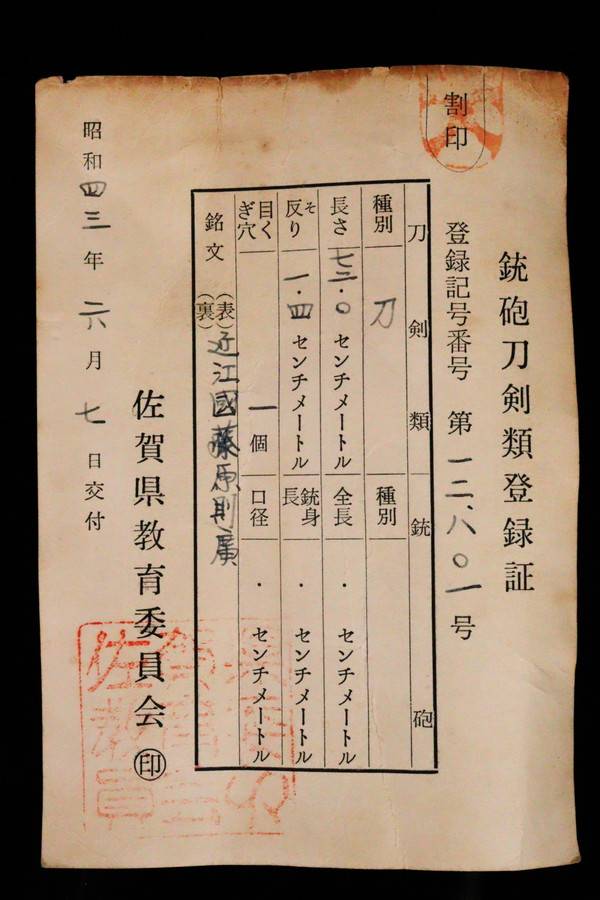 銃砲刀剣類登録証
割印
登録記号番号 第一二、八〇一号
刀剣類 銃砲
種別 刀 種別
長さ 七二・〇センチメートル 全長 ・センチメートル
反そり 一・四センチメートル 銃身長 ・センチメートル
目くぎ穴 一個 口径 ・センチメートル
銘文 (表) 近江國藤原則廣
(裏)
佐賀県教育委員会 印
昭和四三年 六月 七日交付